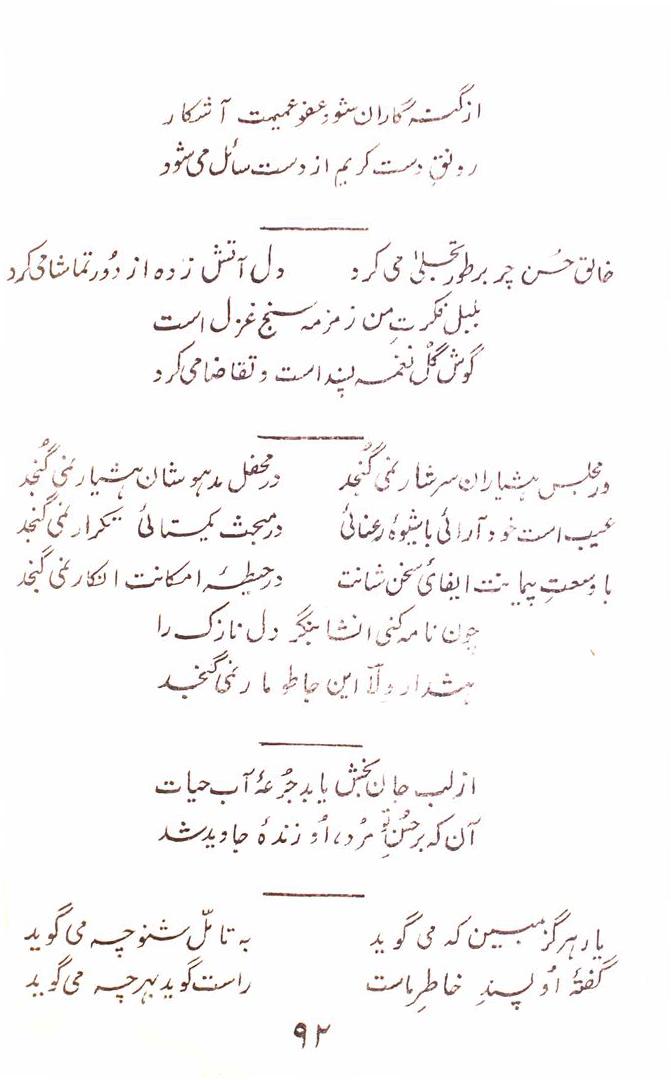 از گنہ گاران شود عفو عمیمت آشکار
رونقِ دست کریم از دست سائل می شود
خالق حُسن چو بر طور تجلّیٰ می کرد دل آتش زدہ از دُور تماشا می کرد
بلبل فکرتِ من زمزمہ سنج غزل است
گوش گُل نغمہ پسند است و تقاضا می کرد
در مجلس ہشیاران سرشار نمی گُنجد در محفل مدہوشان ہشیار نمی گُنجد
عیب است خود آرائی با شیوۂ رعنائی در مبحث یکتائی تکرار نمی گنجد
با وسعتِ پیمانت ایفائ سخن شانت در حیطۂ امکانت انکار نمی گنجد
چون نامہ کنی انشا بنگر دل نازک را
ہشدار ولّا این جا طومار نمی گنجد
از لب جان بخش یابد جُرعۂ آب حیات
آن کہ بر حُسنِ تو مُرد، اُو زندۂ جاوید شد
یار ہرگز مبین کہ می گوید بہ تامّل شنو چہ می گوید
گفتۂ اُو پسندِ خاطرِ ماست راست گوید بہر چہ می گوید
۹۲